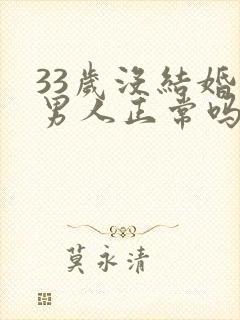 33歲沒結婚
男人正常吗
莫永清